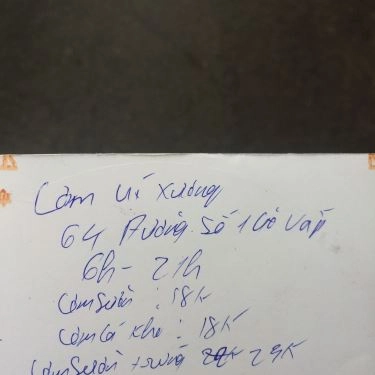 Cơm Vĩ Xương
64 Đường Số 1 Gò Vấp
6h - 21h
Cơm Sườn : 18K
Cơm Cá Kho : 18K
Cơm Sườn trứng 29K